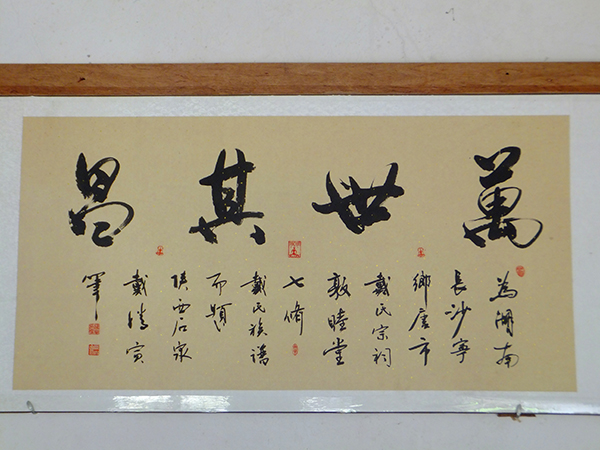 萬世其昌
為湖南
長沙寧
鄉唐市
戴氏宗祠
敦睦堂
七脩
戴氏族譜
而題
陝西石泉
戴清寅
筆